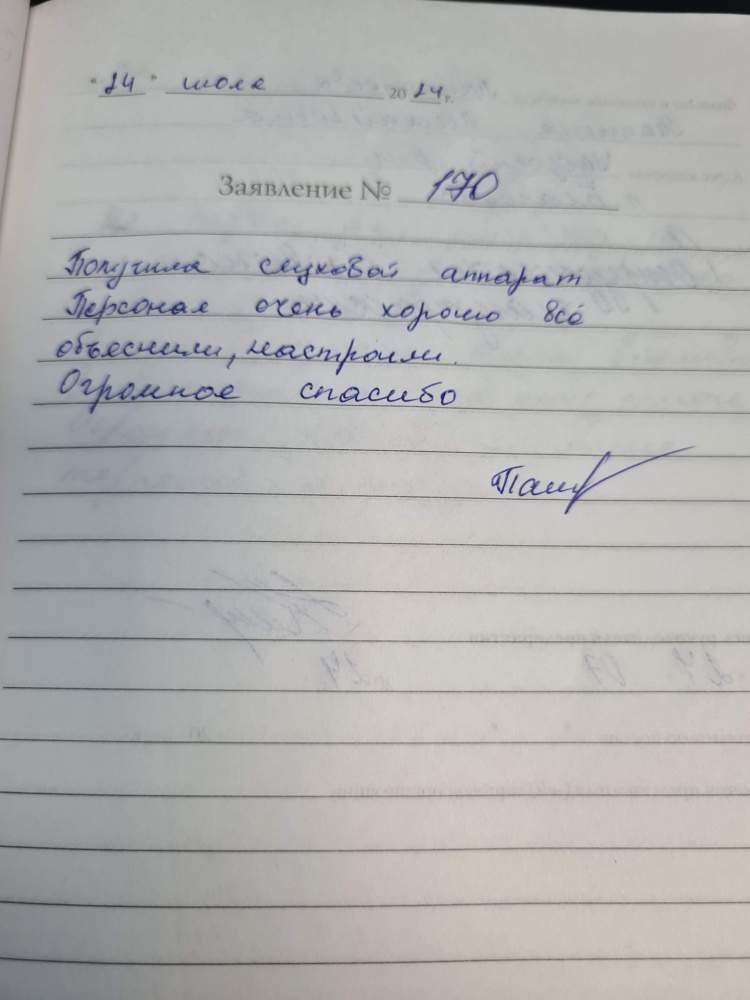 "24" июля 2024 г.
Заявление № 170
Получила слуховой аппарат
Персонал очень хорошо всё
объеснили, настроили.
Огромное спасибо